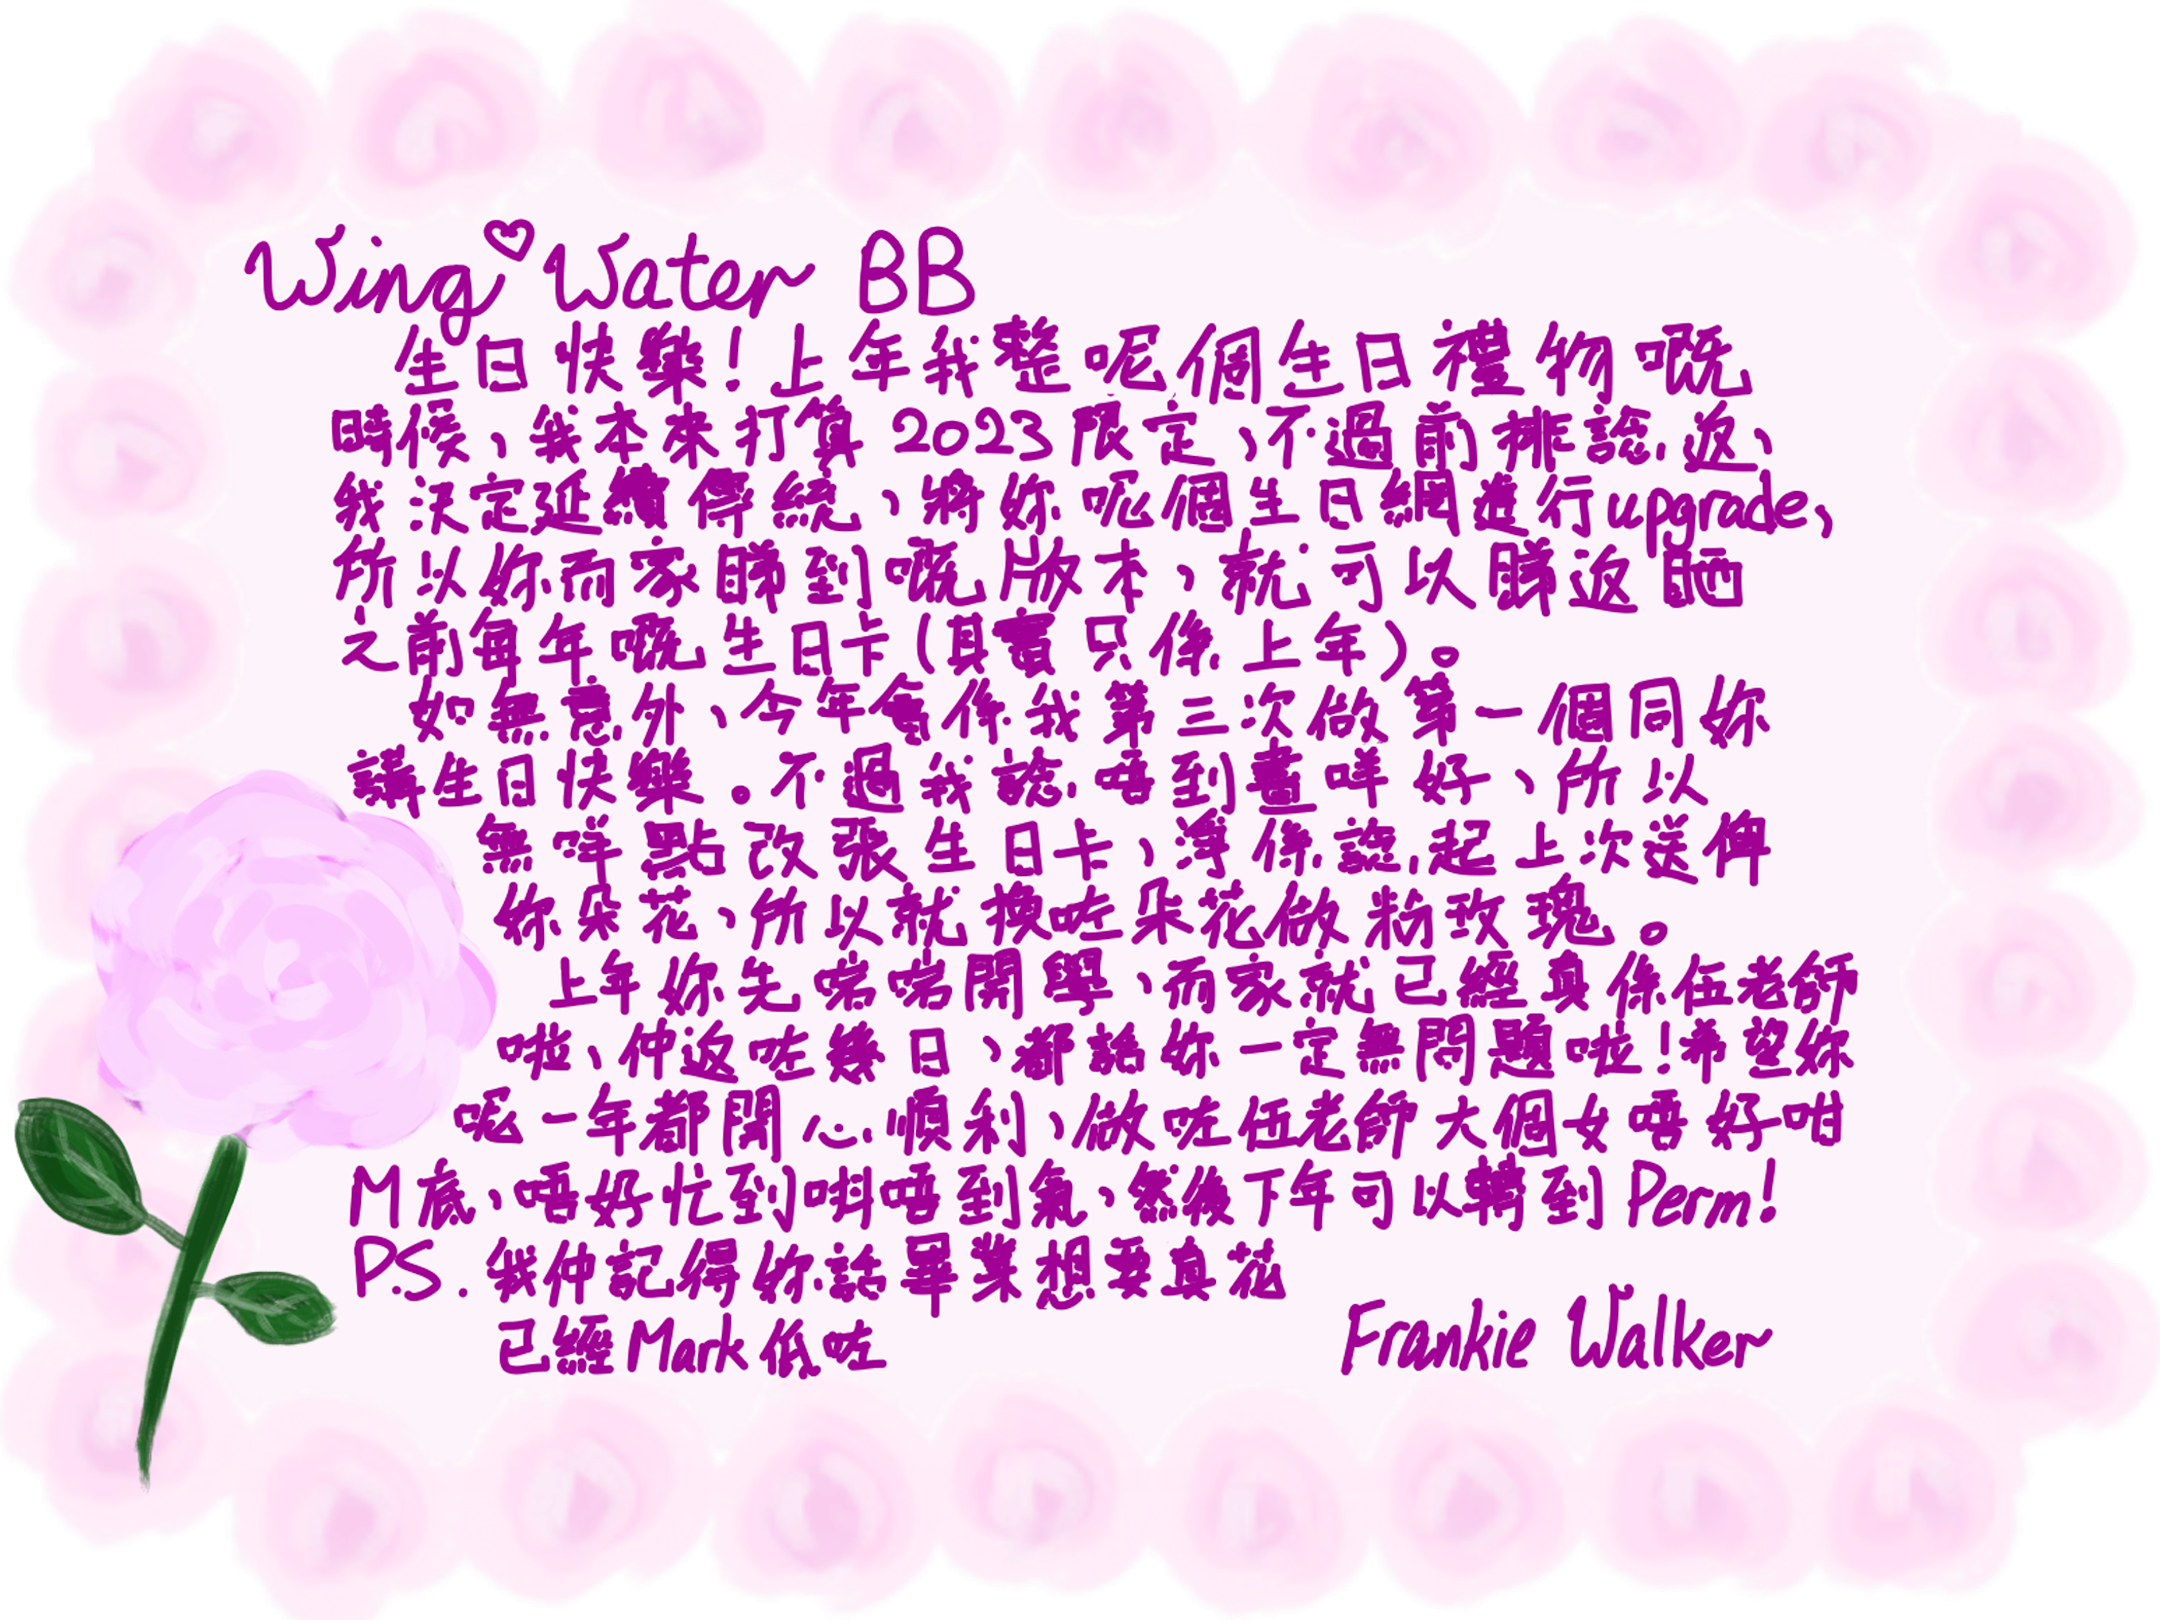 Wing♡Water BB
生日快樂！上年我整呢個生日禮物嘅
時候，我本來打算2023限定，不過前排諗返，
我決定延續傳統，將妳呢個生日網進行upgrade，
所以妳而家睇到嘅版本，就可以睇返晒
之前每年嘅生日卡(其實只係上年)。
如無意外，今年會係我第三次做第一個同妳
講生日快樂。不過我諗唔到畫咩好，所以
無咩點改張生日卡，淨係諗起上次送俾
妳朵花，所以就換咗朵花做粉玫瑰。
上年妳先啱啱開學，而家就已經真係伍老師
啦，仲返咗幾日，都話妳一定無問題啦！希望妳
呢一年都開心順利，做咗伍老師大個女唔好咁
M底，唔好忙到唞唔到氣，然後下年可以轉到Perm!
P.S. 我仲記得妳話畢業想要真花
已經Mark低咗
Frankie Walker